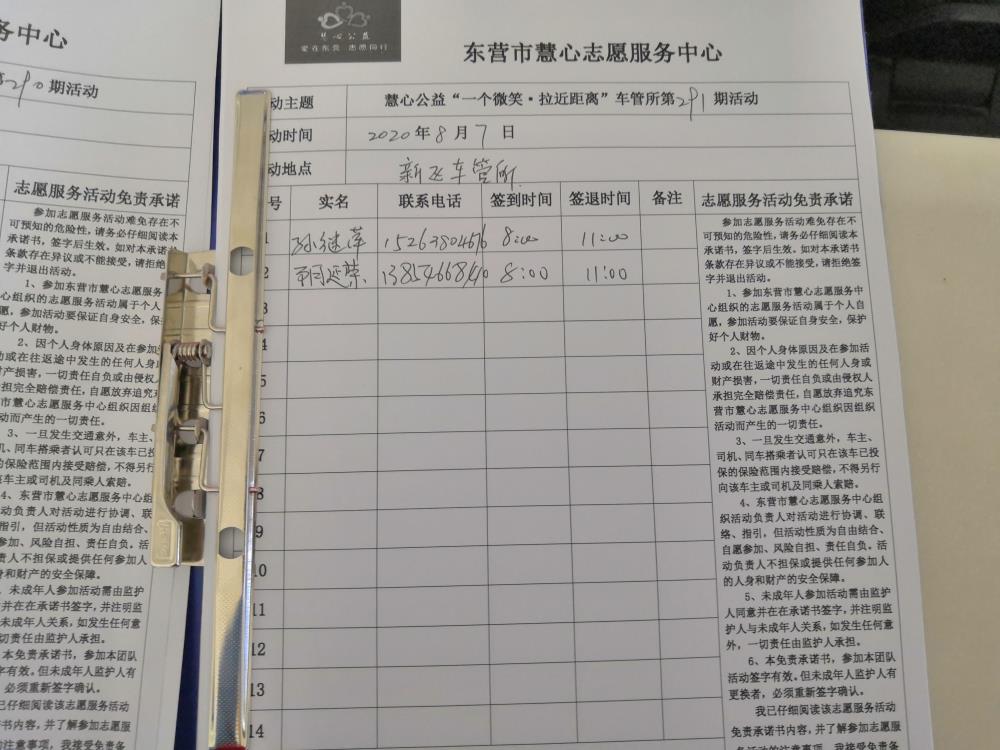 务中心
期活动
志愿服务活动免责承诺
参加志愿服务活动难免存在不
可预知的危险性，请务必仔细阅读本
承诺书，签字后生效。如对本承诺
条款存在异议或不能接受，请拒绝
字并退出活动。
1、参加东营市慧心志愿服务
心组织的志愿服务活动属于个人
愿，参加活动要保证自身安全，保
好个人财物。
2、因个人身体原因及在参加
动或在往返途中发生的任何人身
财产损害，一切责任自负或由侵权
担完全赔偿责任，自愿放弃追究
营市慧心志愿服务中心组织因组
动而产生的一切责任。
3、一旦发生交通意外，车主、
机、同车搭乘者认可只在该车已投
的保险范围内接受赔偿，不得另行
车主或司机及同乘人索赔。
4、东营市慧心志愿服务中心组
动负责人对活动进行协调、联
、指引，但活动性质为自由结合、
参加、风险自担、责任自负。活
责人不担保或提供任何参加人
身和财产的安全保障。
未成年人参加活动需由监护
并在在承诺书签字，并注明监
未成年人关系，如发生任何意
切责任由监护人承担。
本免责承诺书，参加本团队
字有效。但未成年人监护人有
必须重新签字确认。
已仔细阅读该志愿服务活动
书内容，并了解参加志愿服
注意事项，我接受免责条
慧心公益
爱在东营 志愿同行
东营市慧心志愿服务中心
动主题 慧心公益“一个微笑·拉近距离”车管所第291期活动
动时间 2020年8月7日
动地点 新飞车管所
号 实名 联系电话 签到时间 签退时间 备注 志愿服务活动免责承诺
1 孙继萍 15263804676 8:00 11:00
2 8:00 11:00
3
4
5
6
7
8
9
10
11
12
13
14
参加志愿服务活动难免存在不
可预知的危险性，请务必仔细阅读本
承诺书，签字后生效。如对本承诺书
条款存在异议或不能接受，请拒绝签
字并退出活动。
1、参加东营市慧心志愿服务中
心组织的志愿服务活动属于个人自
愿，参加活动要保证自身安全，保护
好个人财物。
2、因个人身体原因及在参加活
动或在往返途中发生的任何人身或
财产损害，一切责任自负或由侵权人
承担完全赔偿责任，自愿放弃追究东
营市慧心志愿服务中心组织因组织
活动而产生的一切责任。
3、一旦发生交通意外，车主、
司机、同车搭乘者认可只在该车已投
保的保险范围内接受赔偿，不得另行
向该车主或司机及同乘人索赔。
4、东营市慧心志愿服务中心组
织活动负责人对活动进行协调、联
络、指引，但活动性质为自由结合、
自愿参加、风险自担、责任自负。活
动负责人不担保或提供任何参加人
的人身和财产的安全保障。
5、未成年人参加活动需由监护
人同意并在在承诺书签字，并注明监
护人与未成年人关系，如发生任何意
外，一切责任由监护人承担。
6、本免责承诺书，参加本团队
活动签字有效。但未成年人监护人有
更换者，必须重新签字确认。
我已仔细阅读该志愿服务活动
免责承诺书内容，并了解参加志愿服
务活动的注意事项，我接受免责条